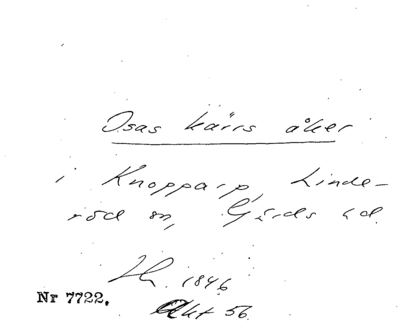 Osas kärrs åker
i Knopparp, Linde-
röd sn, Gärds hd.
1846
Nr 7722.
Akt 56.